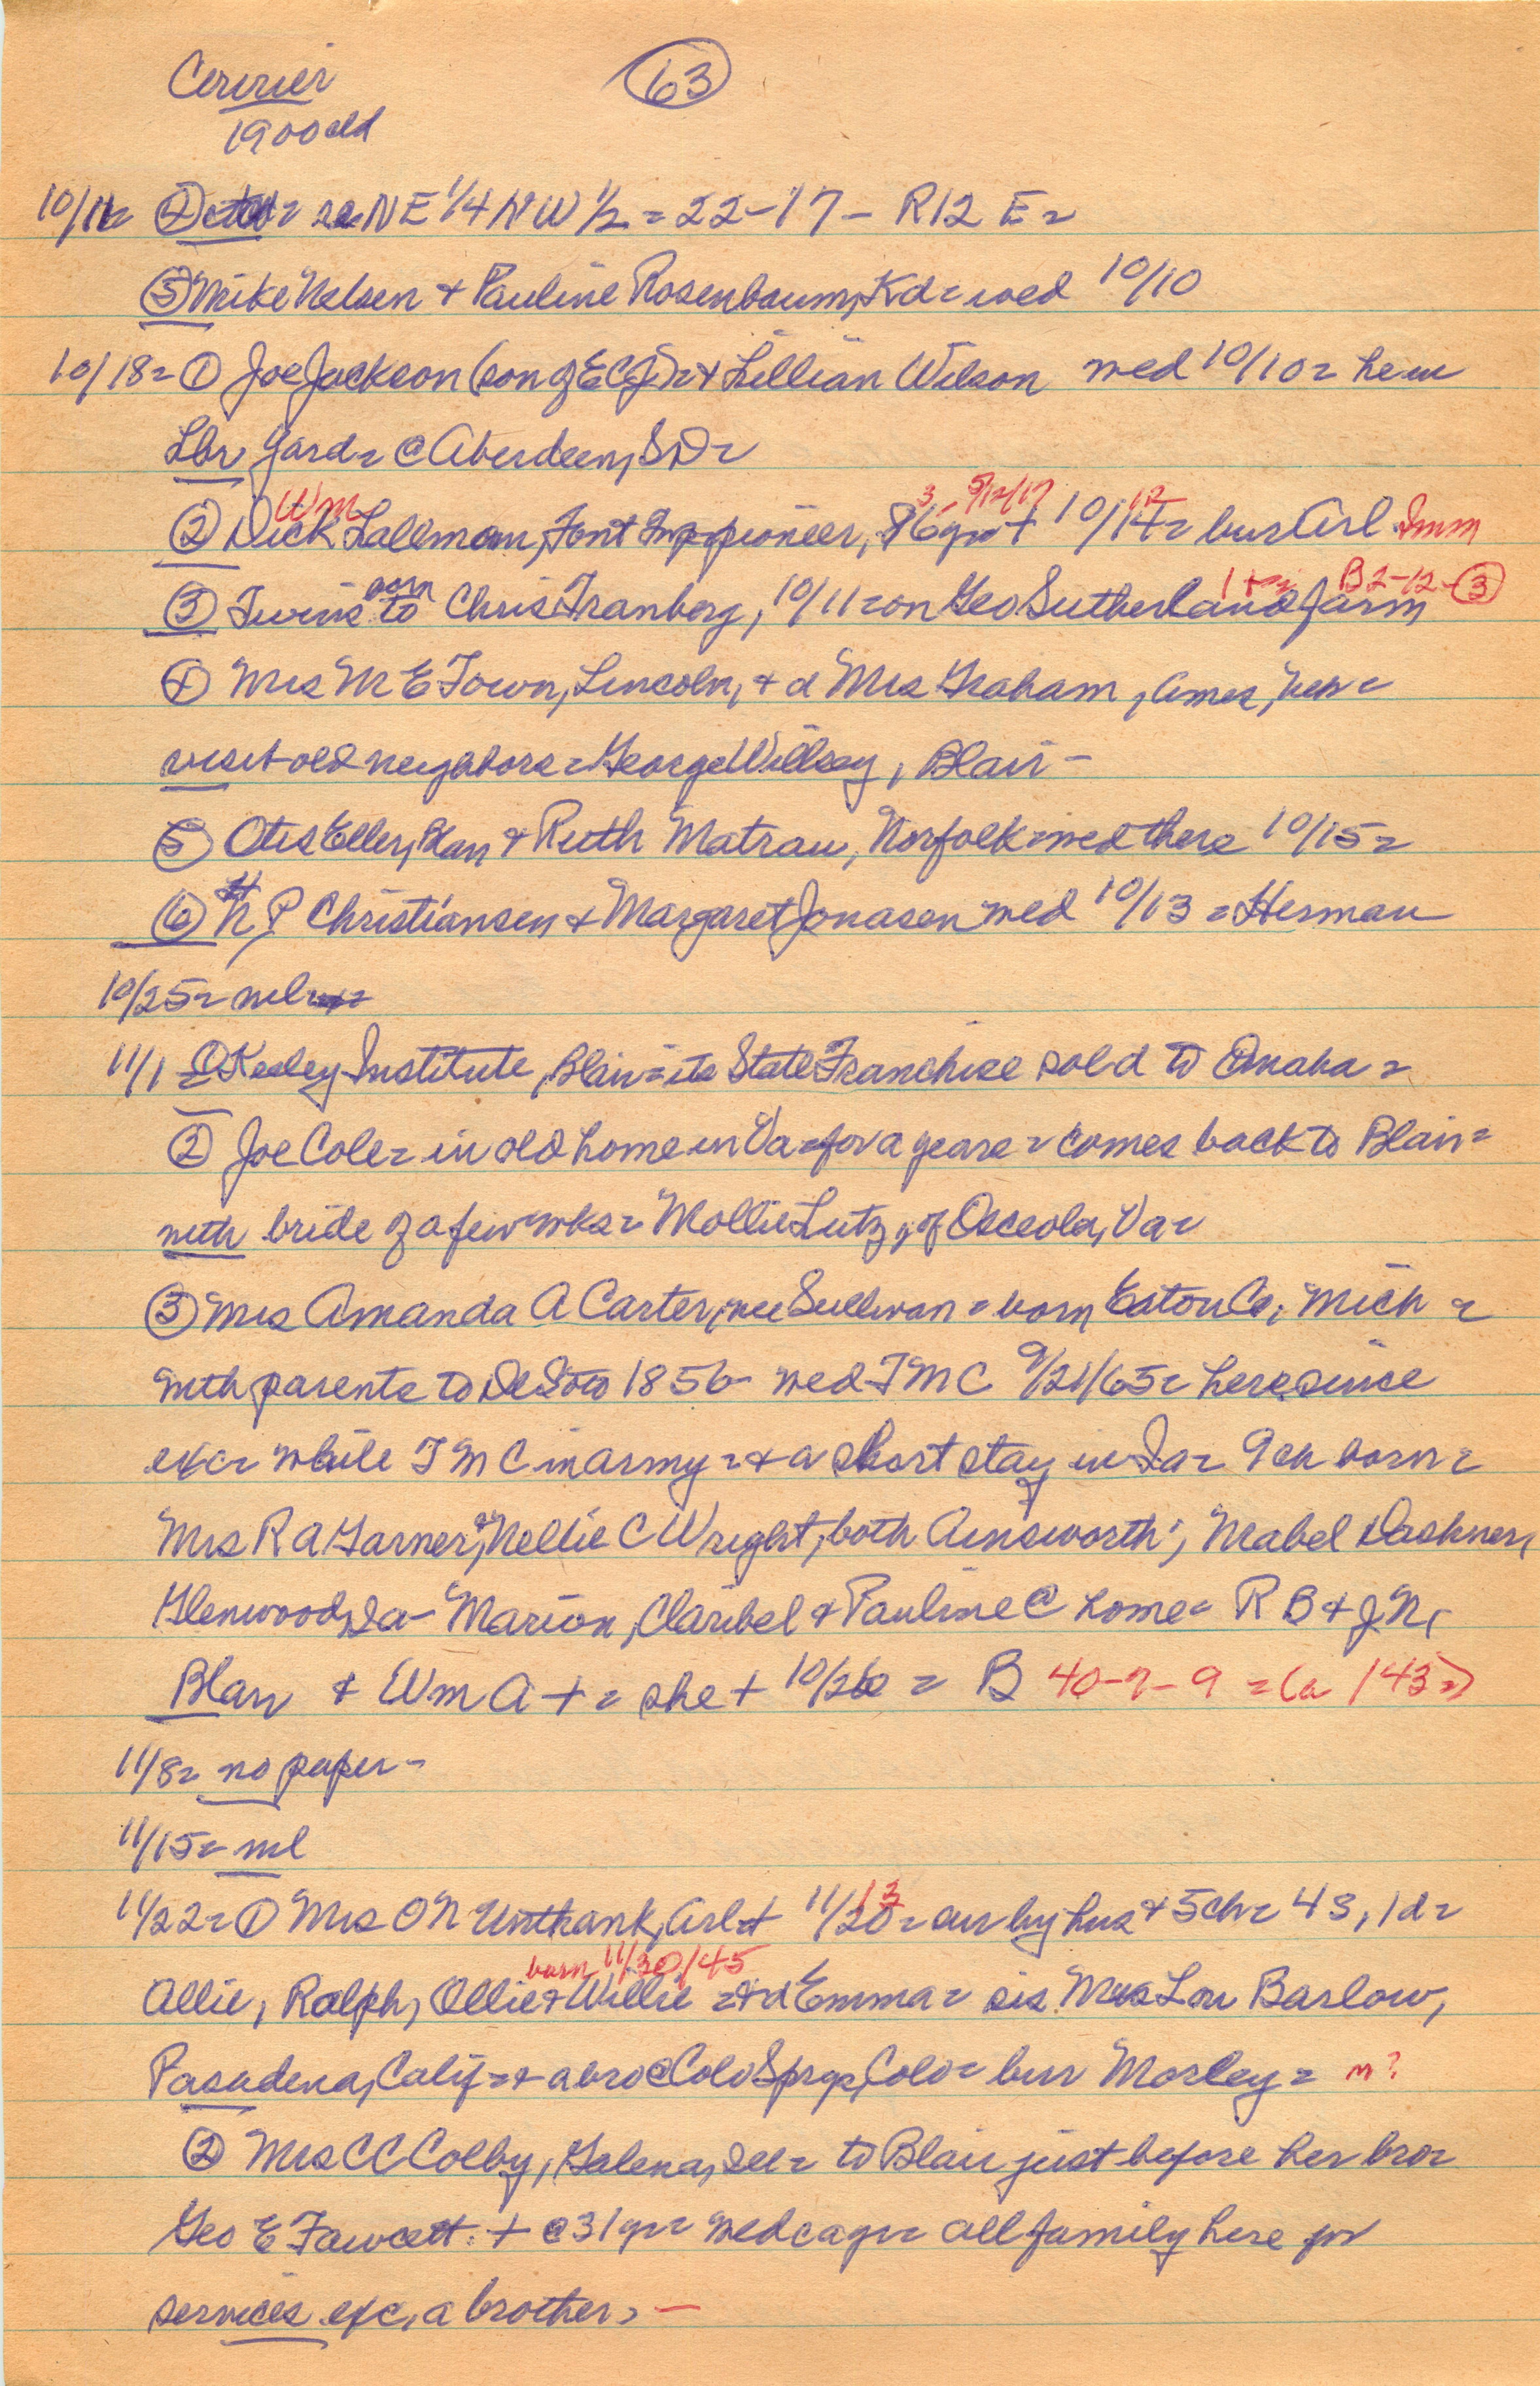 Courier 63
1900 cld
10/11= ④ = NE 1/4 NW 1/2 = 22-17- R12 E=
⑤ Mike Nelsen + Pauline Rosenbaum, Kd= wed 10/10
10/18= ① Joe Jackson (son of ECJ)= + Lillian Wilson wed 10/10= he in
Lbr Yard= @ Aberdeen, SD=
Wm 3 5/12/17 12
② Dick Lallman, Font pioneer, 86 yr + 10/14= bur Arl Imm
born B2-12-③
③ Twins to Chris Franberg, 10/11= on Geo Sutherland farm
④ Mrs M E Town, Lincoln, + d Mrs Graham, Ames, Neb=
visit old neighbors= George Willsey, Blair-
⑤ Otis Eller, Blair + Ruth Matrau, Norfolk= wed there 10/15=
⑥ H P Christiansen + Margaret Jonasen wed 10/13= Herman
10/25= nil
11/1= ① Keeley Institute, Blair= its State Franchise sold to Omaha=
② Joe Cole= in old home in Va= for a year= comes back to Blair=
with bride of a few wks= Mollie Lutz, of Osceola, Va=
③ Mrs Amanda A Carter, nee Sullivan= born Eaton Co, Mich=
with parents to DeSoto 1856- wed TMC 9/21/65= here since
exc= while TMC in army= + a short stay in Ia= 9 ch born=
Mrs R A Garner, Nellie C Wright, both Ainsworth; Mabel Dashner,
Glenwood, Ia- Marion, Claribel + Pauline @ home= R B + J N,
Blair + Wm A += she + 10/26= B 40-7-9 =(a 143=)
11/8= no paper-
11/15= nil
11/22= ① Mrs O N Unthank, Arl + 11/20 13= sur by hus + 5 ch= 4 S, 1 d=
born 11/30/45
Allie, Ralph, Ollie + Willie = + d Emma= sis Mrs Lou Barlow,
Pasadena, Calif= + a bro @ Colo Sprgs, Colo= bur Morley= n?
② Mrs C C Colby, Galena, Ill= to Blair just before her bro=
Geo E Fawcett + @ 31 yr= wed c a yr= all family here for
services exc, a brother, -